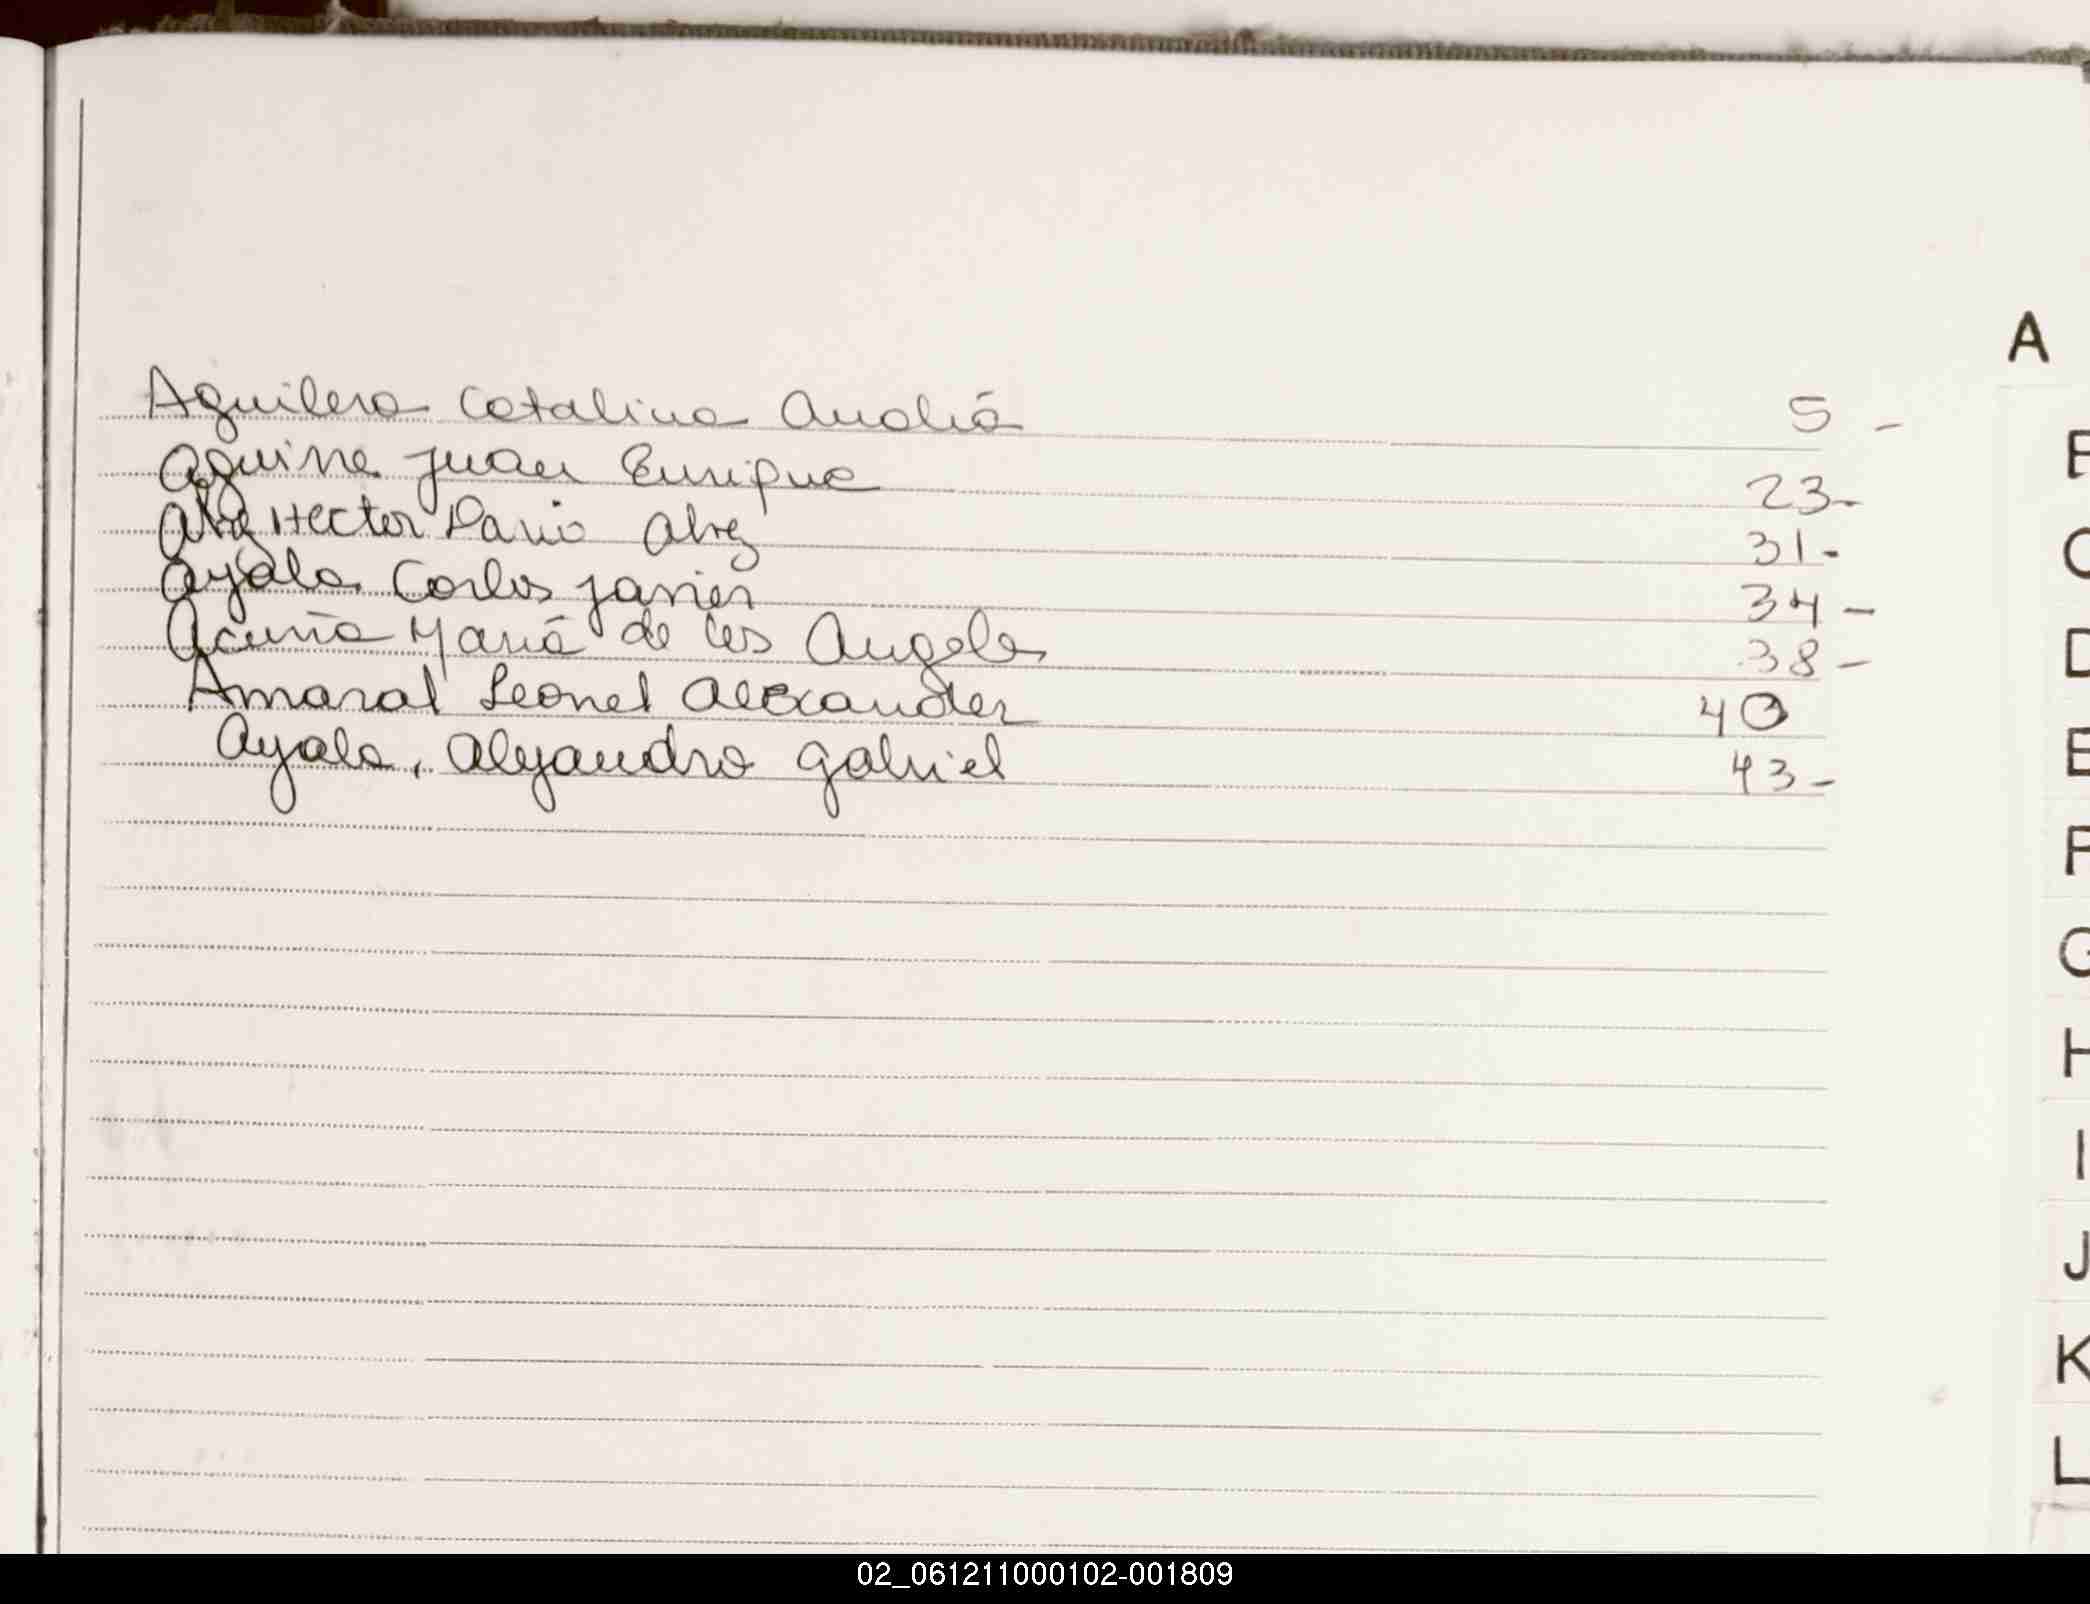 A
Aguilera Catalina Analiá 5 -
Aguirre Juan Enrique 23-
Hector Dario 31-
Ayala Carlos Javier 34 -
Acuña Mariá de los Angeles 38 -
Amaral Leonel Alexander 40
Ayala, Alejandro Gabriel 43-
C
D
E
F
G
H
I
J
K
L
02_061211000102-001809